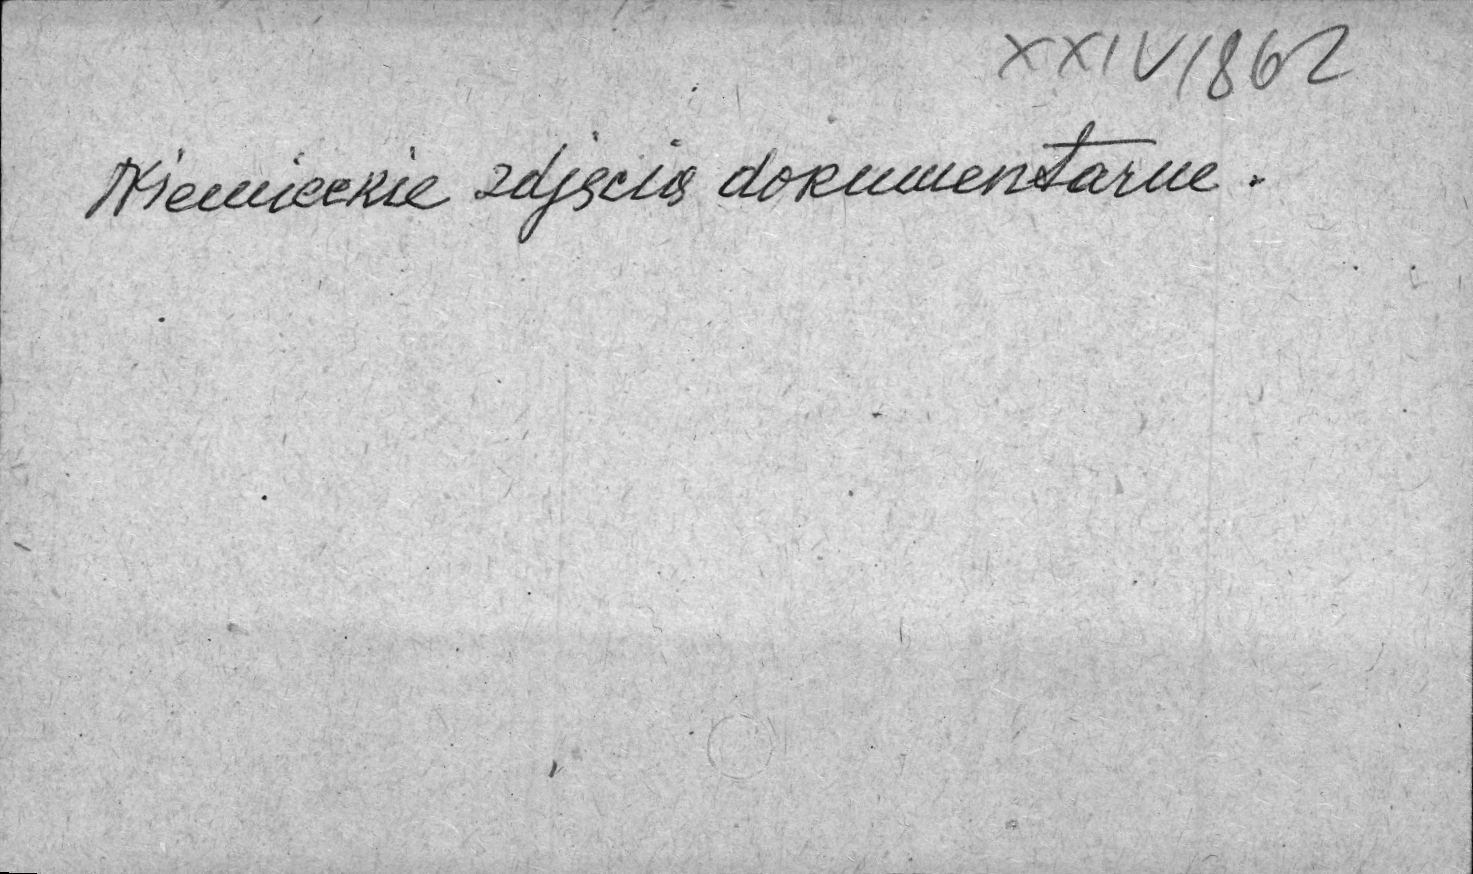 XXIV/862
Niemieckie zdjęcia dokumentarne.